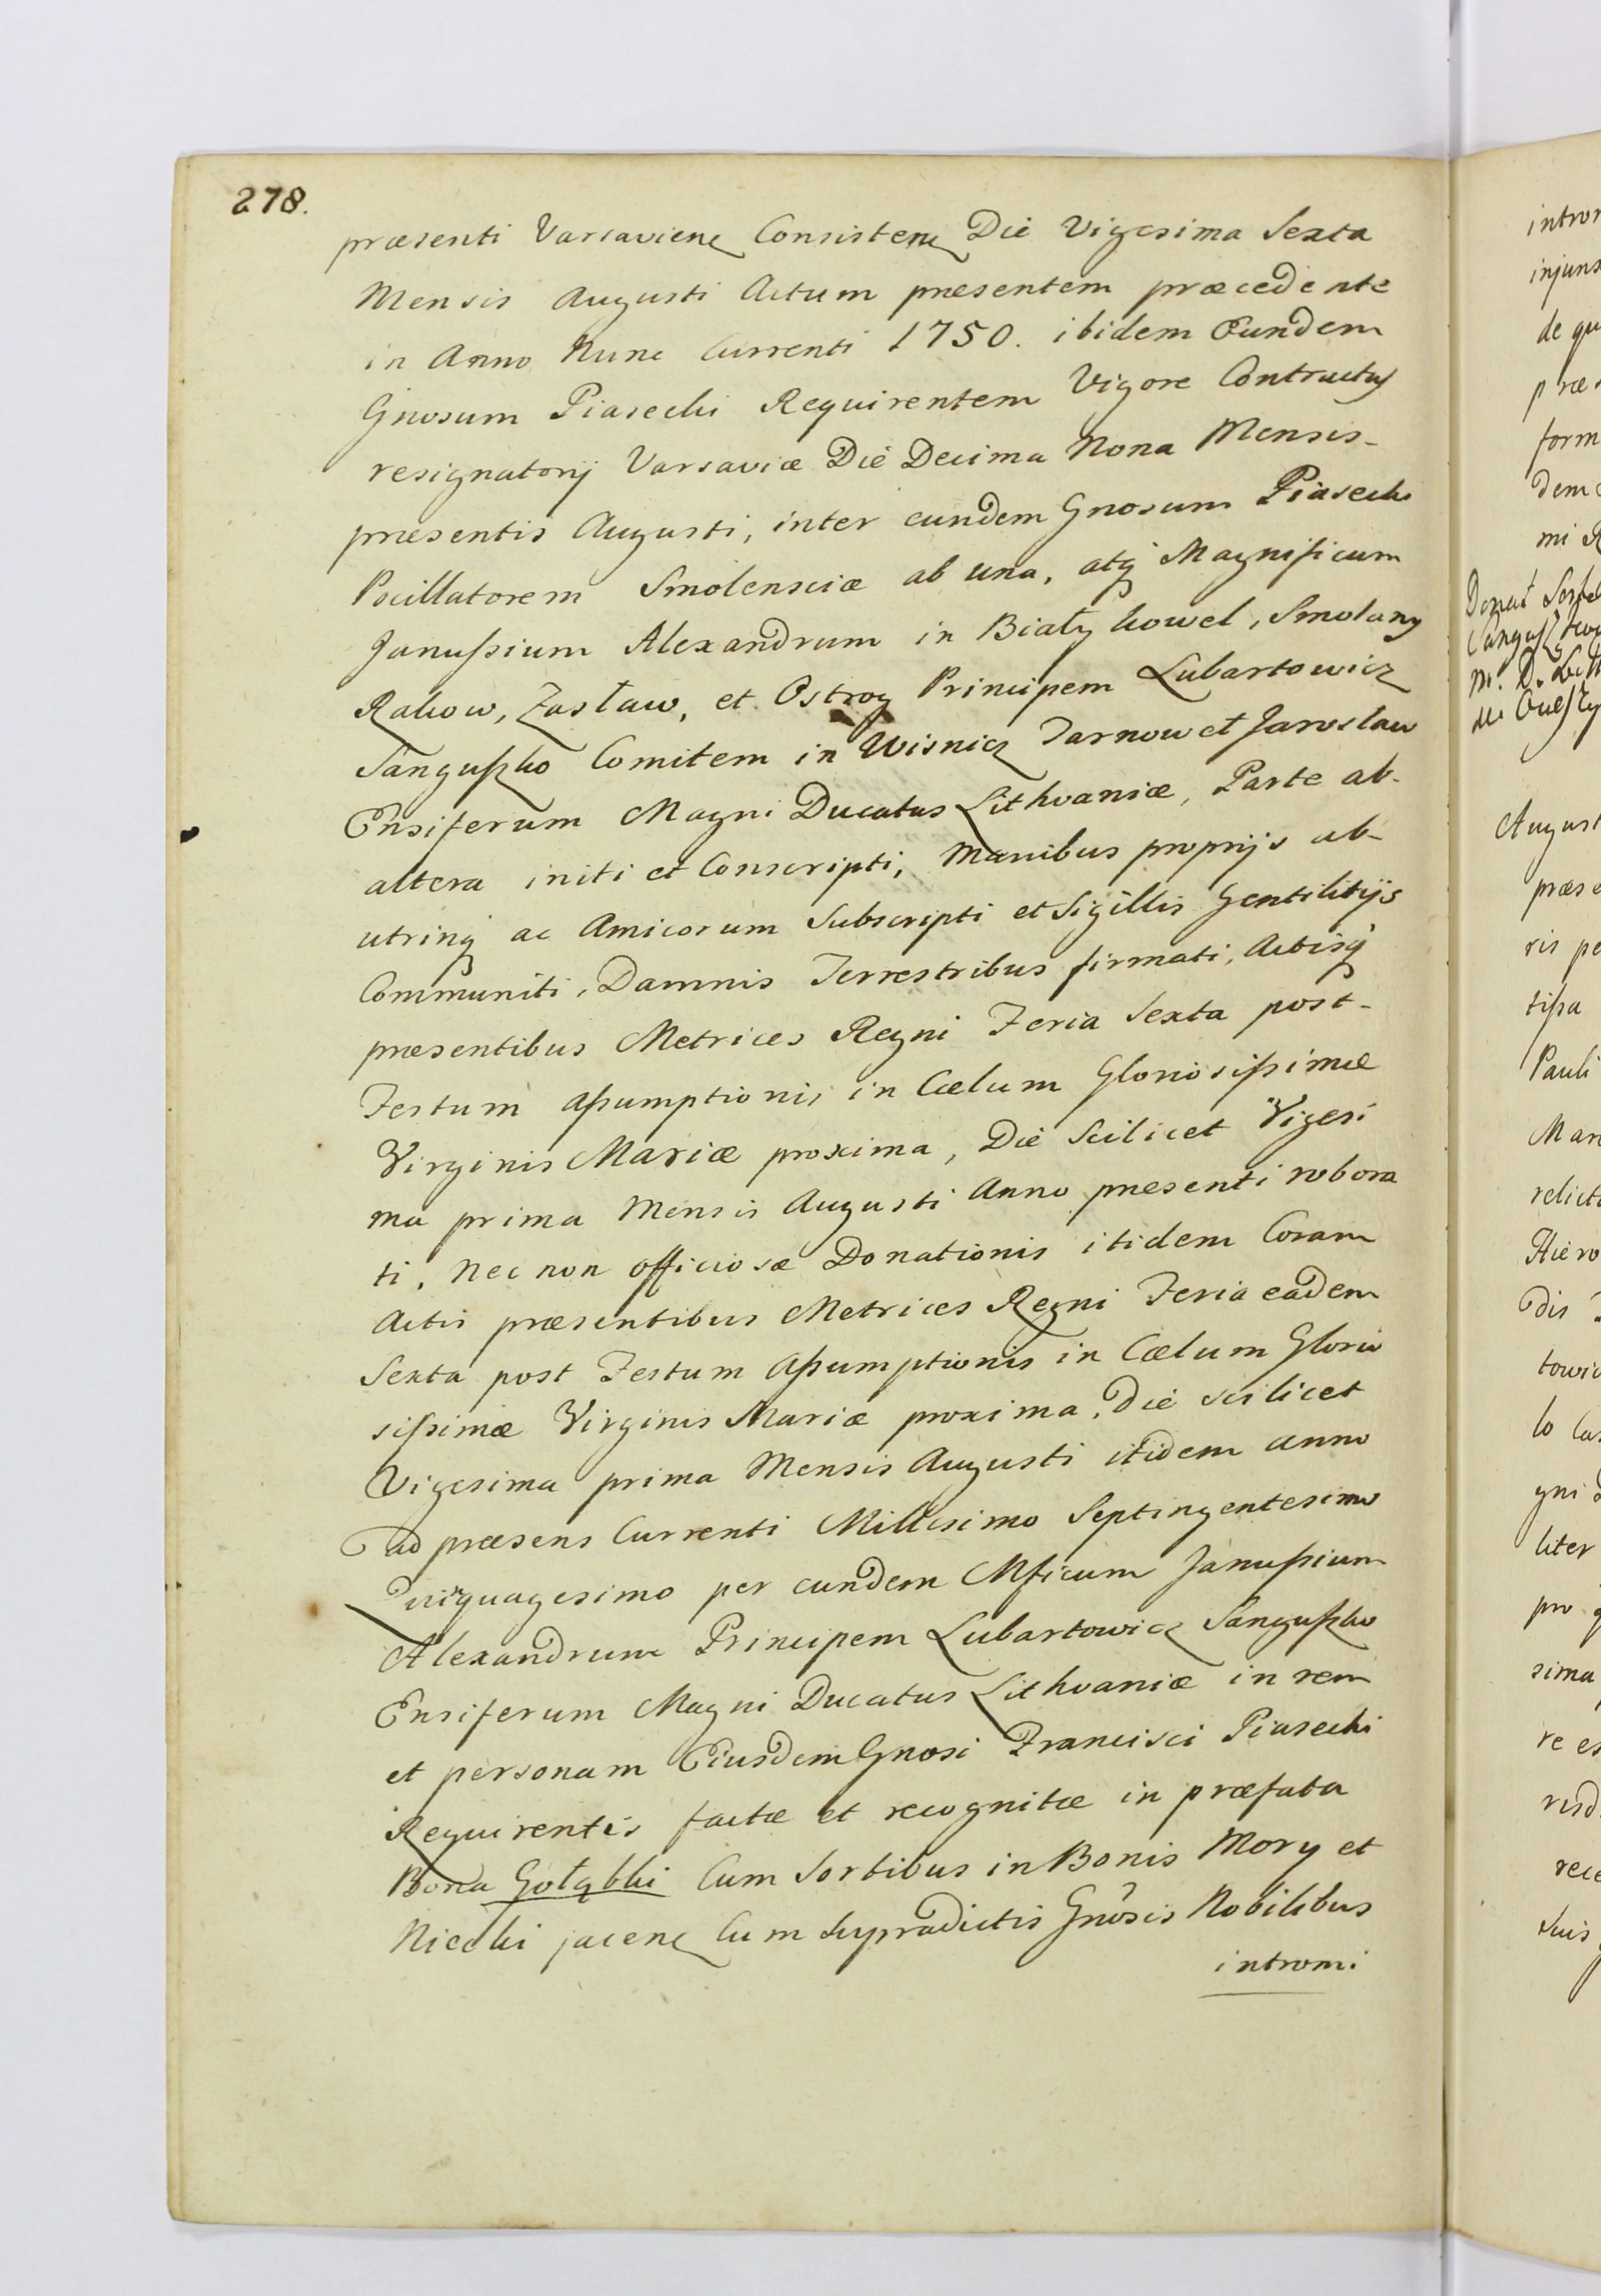 278.
præsenti Varsavienę Consistenę Die Vigesima Sexta
Mensis Augusti Actum præsentem præcedente
in Anno Nunc Currenti 1750. ibidem Eundem
Gnosum Piasecki Requirentem Vigore Contractus
resignatorij Varsaviæ Die Decima Nona Mensis
præsentis Augusti, inter eundem Gnosum Piasecki
Pocillatorem Smolensciæ ab una, atq Magnificum
Janußium Alexandrum in Biały kowel, Smolany
Rakow, Zasław, et Ostrog Principem Lubartowicz
Sangußko Comitem in Wisnicz Tarnow et Jaroslaw
Ensiferum Magni Ducatus Lithvaniæ, Parte ab
altera initi et Conscripti, Manibus proprijs ab
utrinq ac Amicorum Subscripti et Sigillis Gentilitijs
Communiti, Damnis Terrestribus firmati, Actisq
præsentibus Metrices Regni Feria Sexta post
Festum Aßumptionis in Cælum Gloriosißimæ
Virginis Mariæ proxima, Die Scilicet Vigesi
ma prima Mensis Augusti Anno præsenti robora
ti, Nec non officiosæ Donationis itidem Coram
Actis præsentibus Metrices Regni Feria eadem
Sexta post Festum Aßumptionis in Cælum Glorio
sißimæ Virginis Mariæ proxima, Die scilicet
Vigesima prima Mensis Augusti itidem anno
ad præsens Currenti Millesimo Septingentesimo
Quinquagesimo per eundem Mficum Janußium
Alexandrum Principem Lubartowicz Sangußko
Ensiferum Magni Ducatus Lithvaniæ in rem
et personam Eiusdem Gnosi Francisci Piasecki
Requirentis factæ et recognitæ in præfata
Bona Gołąbki Cum Sortibus in Bonis Mory et
Niecki jacenę Cum supradictis Gnosis Nobilibus
intromi
intro
injun
de qu
præ
form
dem
mi R
August
præse
ris pe
tißa
Pauli
Mar
relict
Hiero
dis
towic
lo Cas
gni
liter
pro q
sima
re es
resd
rece
suis